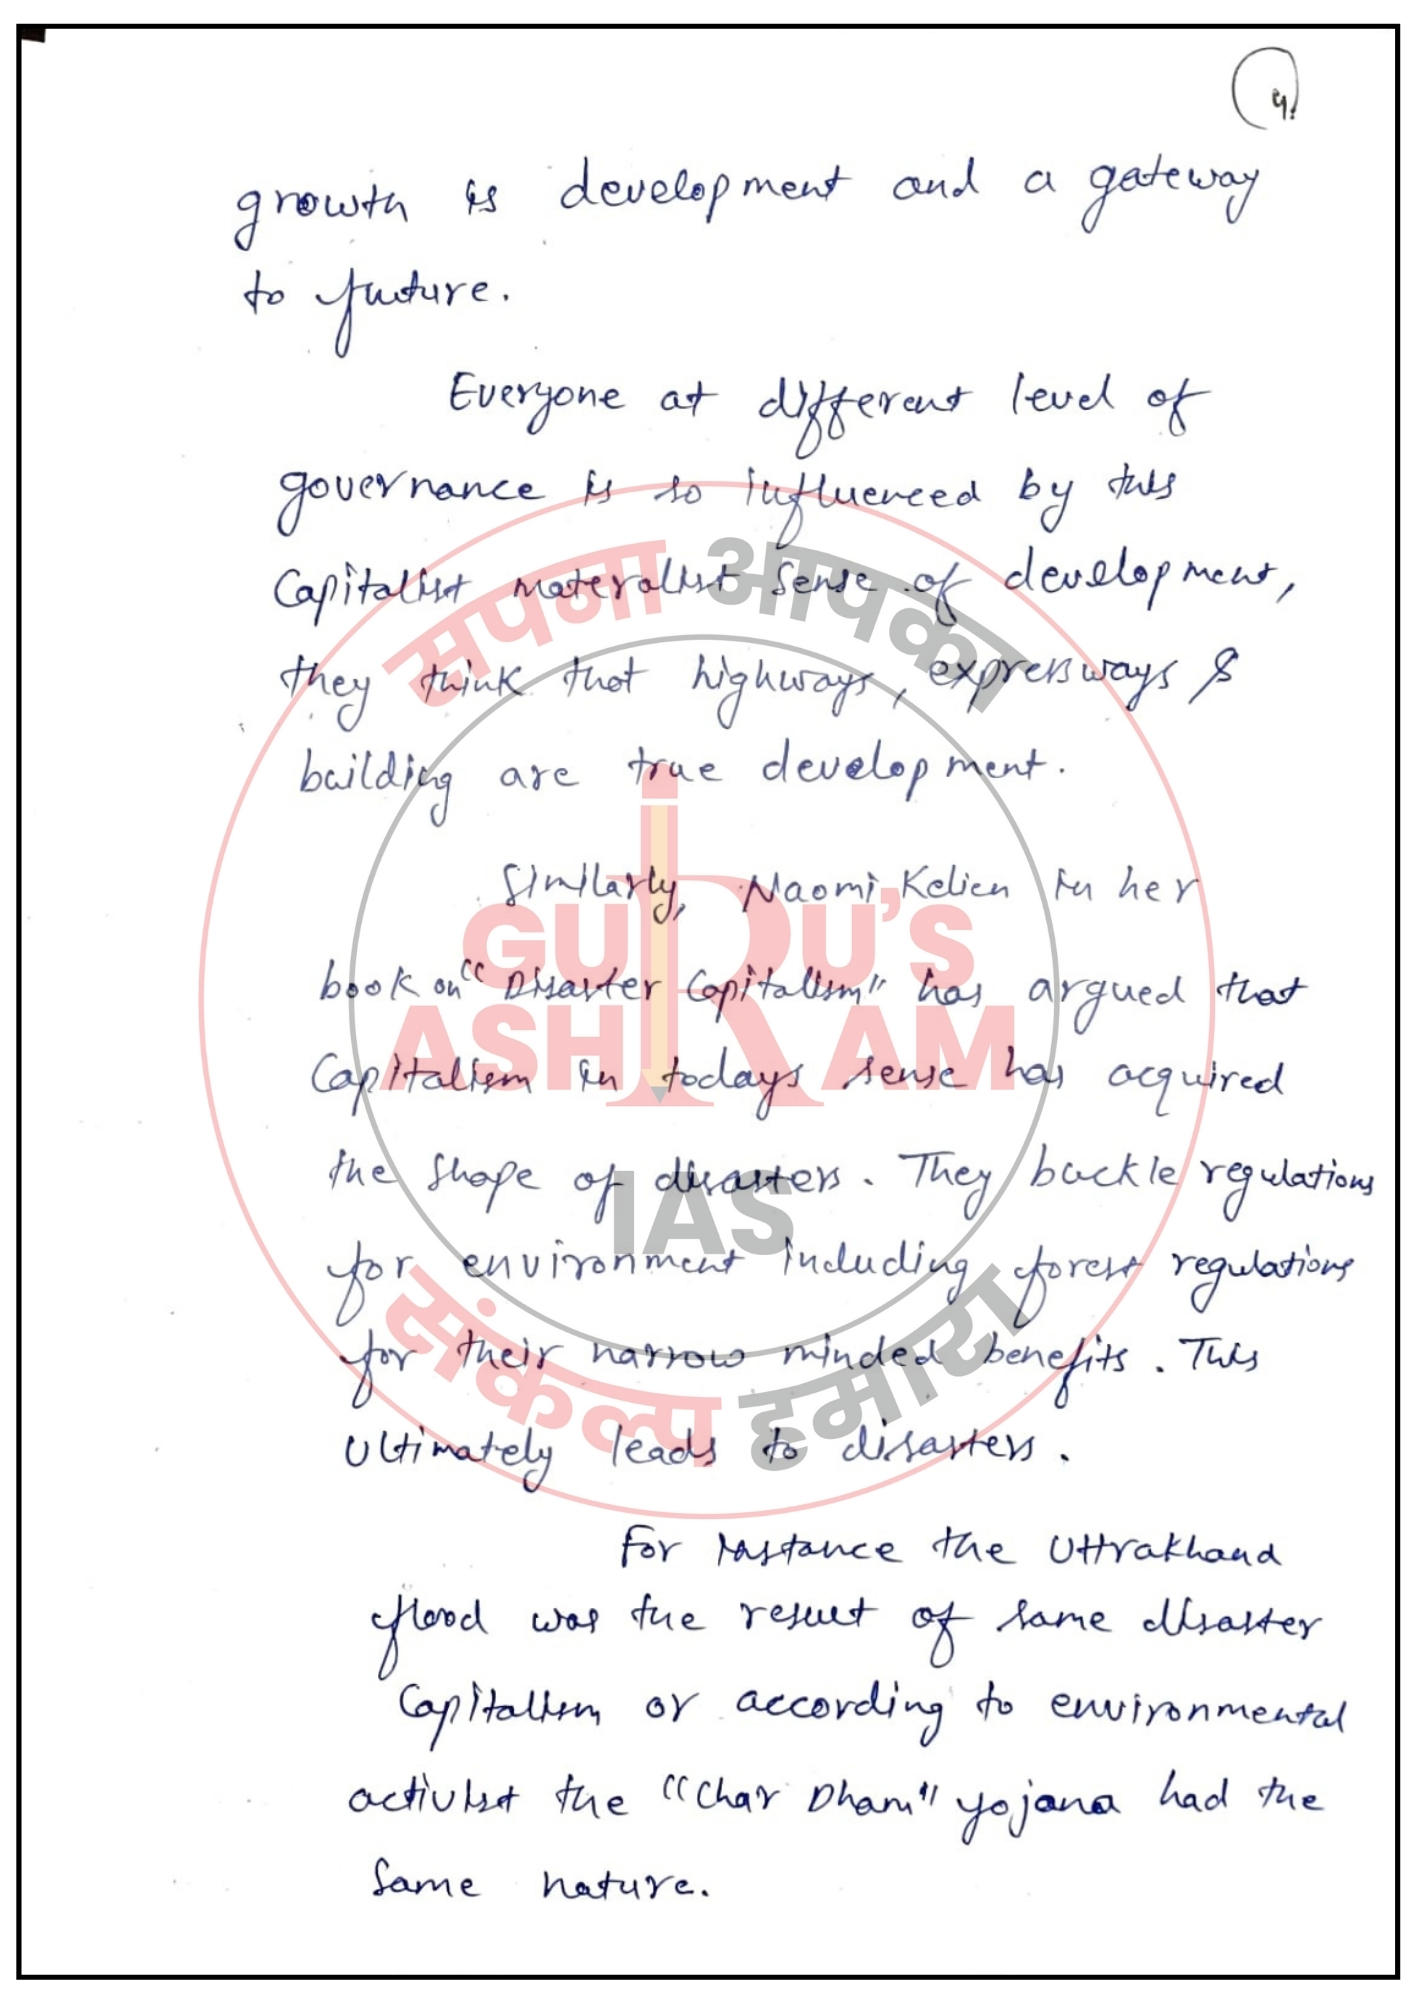 4.
growth is development and a gateway
to future.
Everyone at different level of
governance is so influenced by this
Capitalist materalist sense of development,
they think that highways, expressways &
building are true development.
Similarly, Naomi Kelien in her
book on "Disaster Capitalism" has argued that
Capitalism in todays sense has acquired
the shape of disasters. They buckle regulations
for environment including forest regulations
for their narrow minded benefits. This
ultimately leads to disasters.
For instance the Uttrakhand
flood was the result of same disaster
Capitalism or according to environmental
activist the "Char Dham" yojana had the
same nature.
सपना आपका
GURU'S
ASHRAM
IAS
संकल्प हमारा